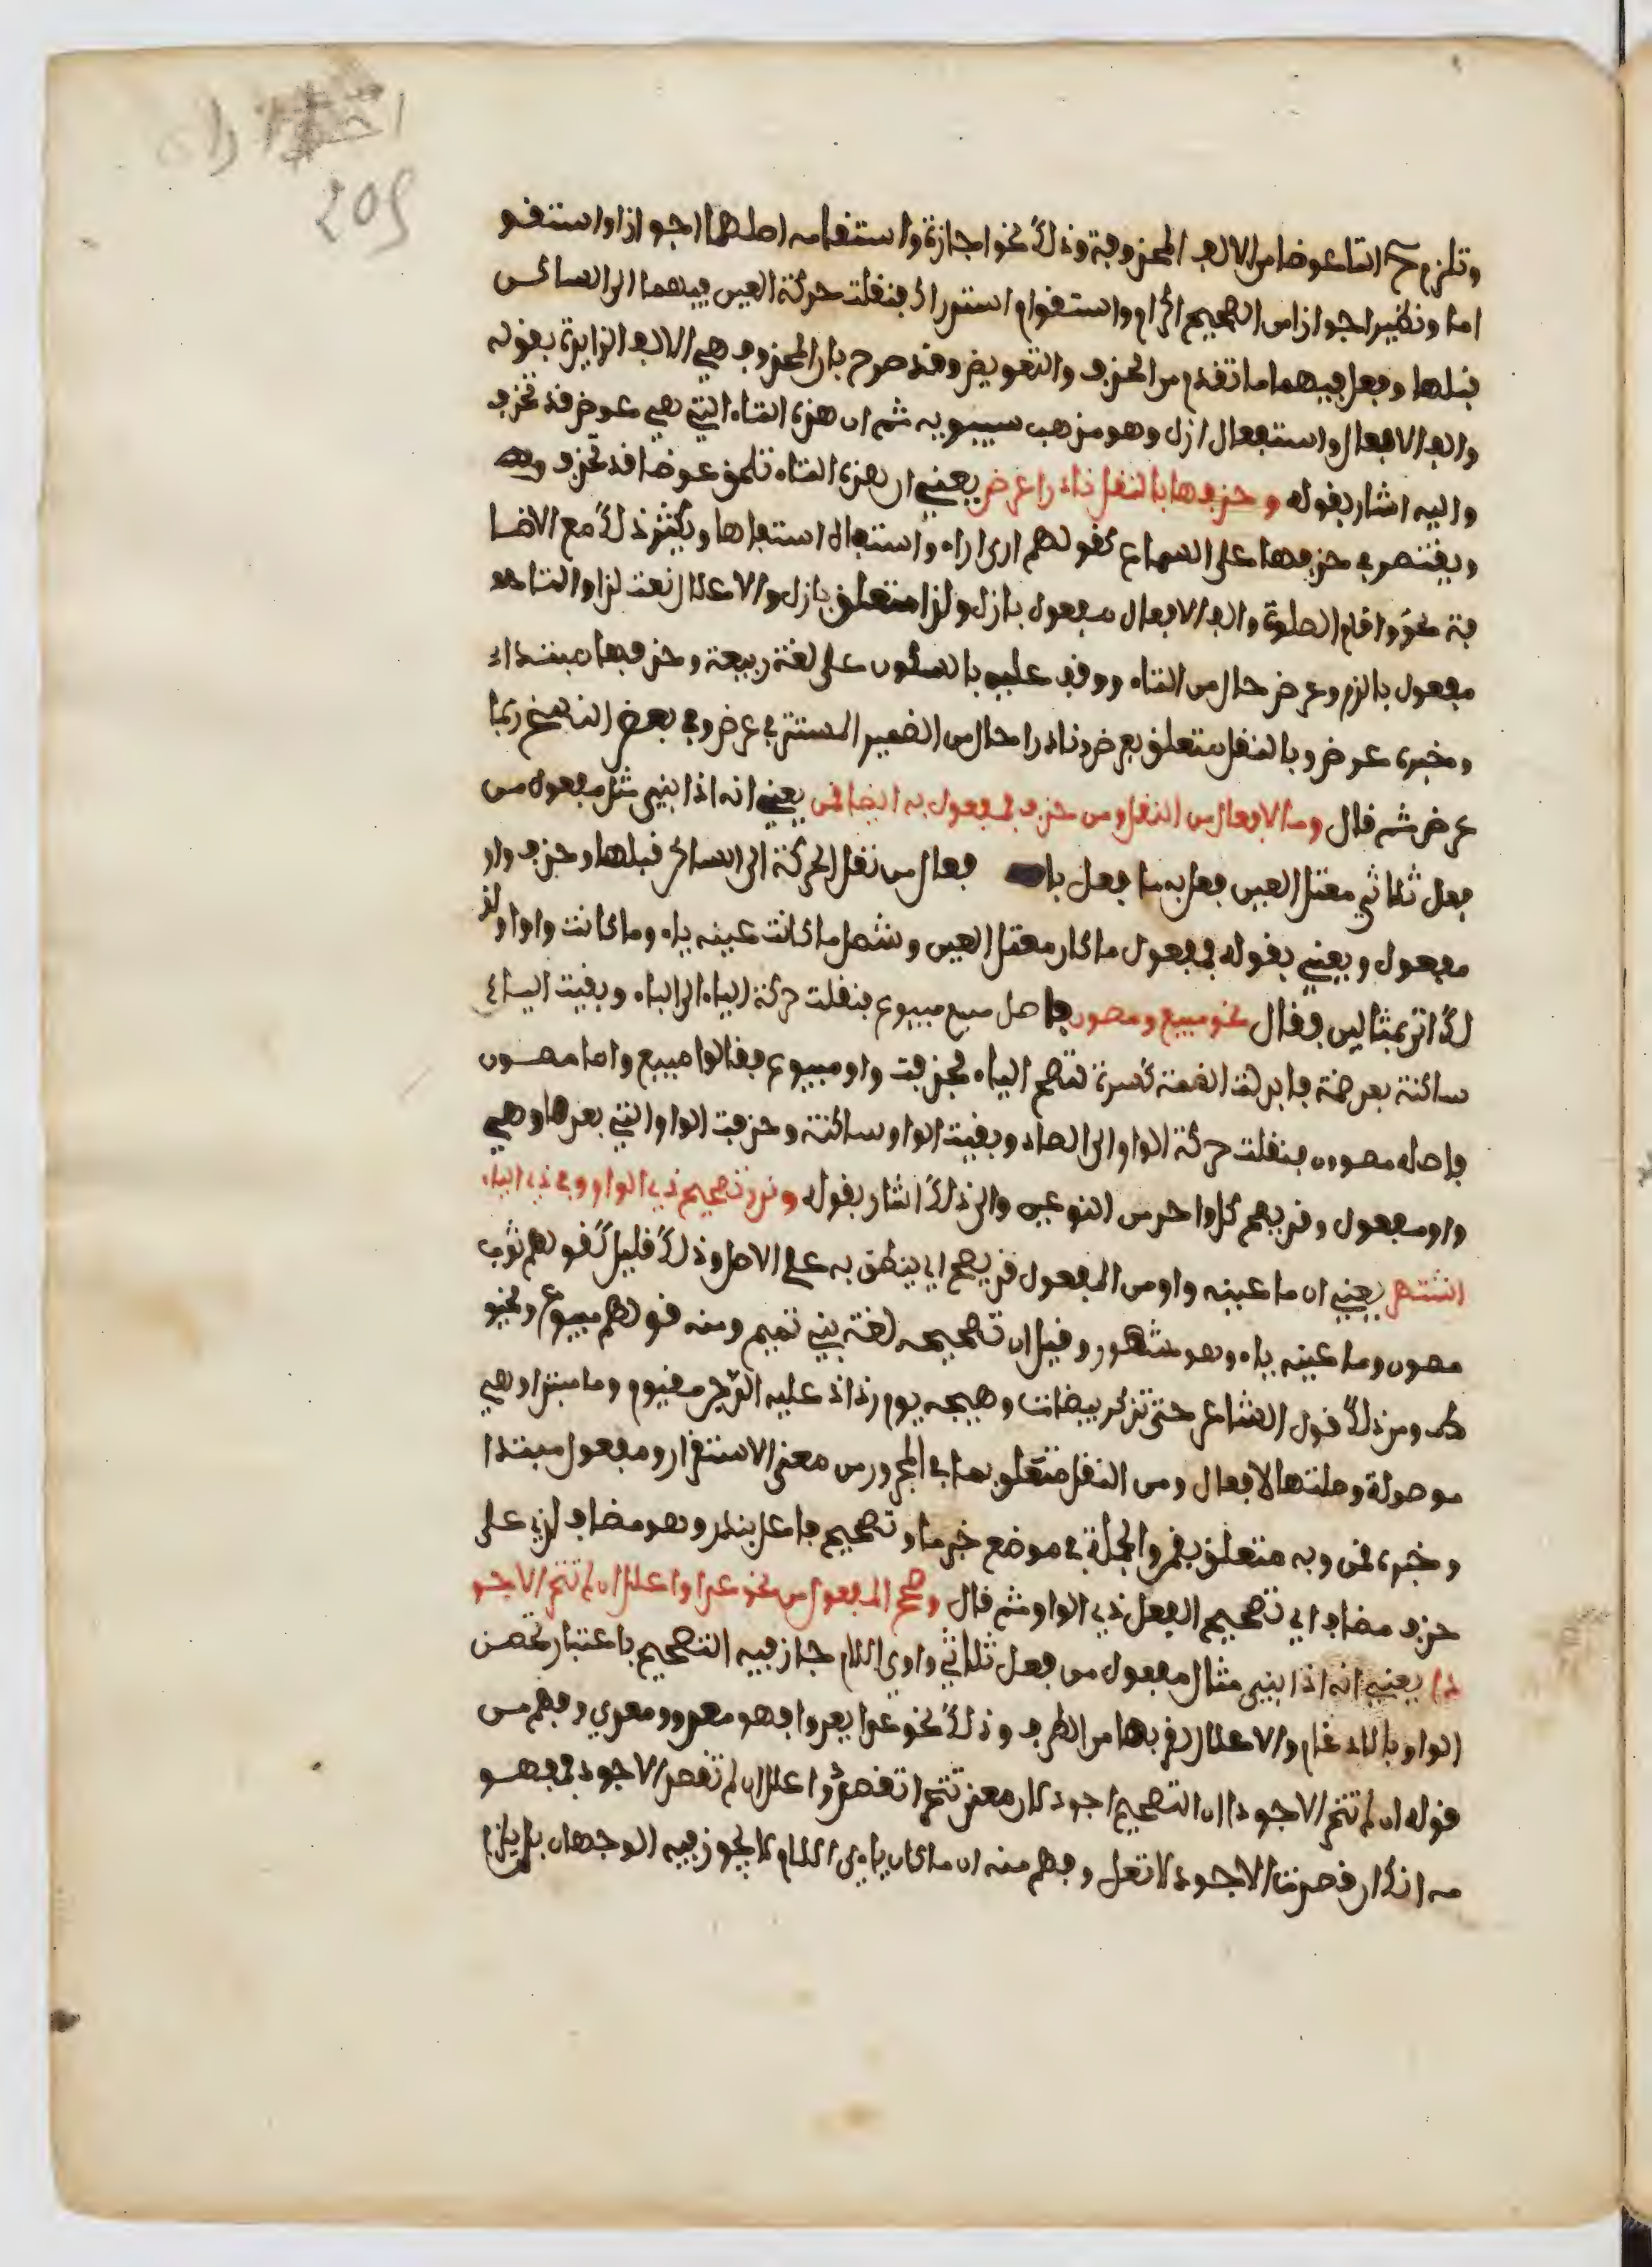 وتلزم ح التا عوضا من الالف المحذوفة وذلك نحو اجازة واستقامه اصلهما اجواز او استقو
اما ونظير اجوازا من الصحيح اكرام واستقوام استدراك فنقلت حركة العين فيهما الى الساكن
قبلها وفعل فيهما ما تقدم من الحذف والتعويض وقد صرح بان المحذوف هي الالف الزايدة بقوله
والف الافعال واستفعال ازل وهو مذهب سيبويه ثم ان هذه التاء التي هي عوض قد تحذف
واليه اشار بقوله وحذفها بالنقل نادرا عرض يعني ان هذه التاء تلحق عوضا قد تحذف
ويقتصر في حذفها على السماع كقولهم ارى اراء واستفاه استفاها ويكثر ذلك مع الاضا
فة نحو واقام الصلوة والف الافعال مفعول بازل ولذا متعلق بازل والاعلال نعت لذا والتا
مفعول بالزم وعرض حال من التاء ووقف عليه بالسكون على لغة ربيعة وحذفها مبتدا
وخبره عرض وبالنقل متعلق بعرض ونادرا حال من الضمير المستتر في عرض وفي بعض النسخ ربما
عرض ثم قال وما لافعال من النقل ومن حذف فمفعول به ايضا قمن يعني انه اذا بني مثل مفعول من
فعل ثلاثي معتل العين فعل به ما فعل با فعال من نقل الحركة الى الساكن قبلها وحذف واو
مفعول ويعني بقوله فمفعول ما كان معتل العين وشمل ما كانت عينه ياء وما كانت واوا ولذ
لك اتى بمثالين فقال نحو مبيع ومصون فاصل مبيع مبيوع فنقلت حركة الياء الى الباء وبقيت الياء
ساكنة بعد ضمة فابدلت الضمة كسرة لتصح الياء فحذفت واو مبيوع فقالوا مبيع واما مصون
فاصله مصوون فنقلت حركة الواو الى الصاد وبقيت الواو ساكنة وحذفت الواو التي بعدها وهي
واو مفعول وقد يصح كل واحد من النوعين والى ذلك اشار بقوله وندر تصحيح ذي الواو وفي ذي الياء
اشتهر يعني ان ما عينه واو من المفعول قد يصح اي ينطق به على الاصل وذلك قليل كقولهم ثوب
مصون وما عينه ياء وهو مشهور وقيل ان تصحيحه لغة بني تميم ومنه قولهم مبيوع ومخيو
ط ومن ذلك قول الشاعر حتى تذكر بيضات وهيجه يوم رذاذ عليه الدجن مغيوم وما مبتدا وهي
موصولة وصلتها لافعال ومن النقل متعلق بما في المجرور من معنى الاستقرار ومفعول مبتدا
وخبره قمن وبه متعلق بقمن والجملة في موضع خبر ما وتصحيح فاعل بندر وهو مضاف لذي على
حذف مضاف اي تصحيح الفعل ذي الواو ثم قال وصحح المفعول من نحو عدا واعلل ان لم تتحر الاجو
دا يعني انه اذا بني مثال مفعول من فعل ثلاثي واوي اللام جاز فيه التصحيح باعتبار تحصن
الواو بالادغام والاعلال لقربها من الطرف وذلك نحو عدا يعدوا فهو معدو ومعدي وفهم من
قوله ان لم تتحر الاجودا ان التصحيح اجود لان معنى تتحر تقصد واعلل ان لم تقصد الاجود فمفهو
مه انك ان قصدت الاجود لا تعل وفهم منه ان ما كان ياءي اللام لا يجوز فيه الوجهان بل يلز
205